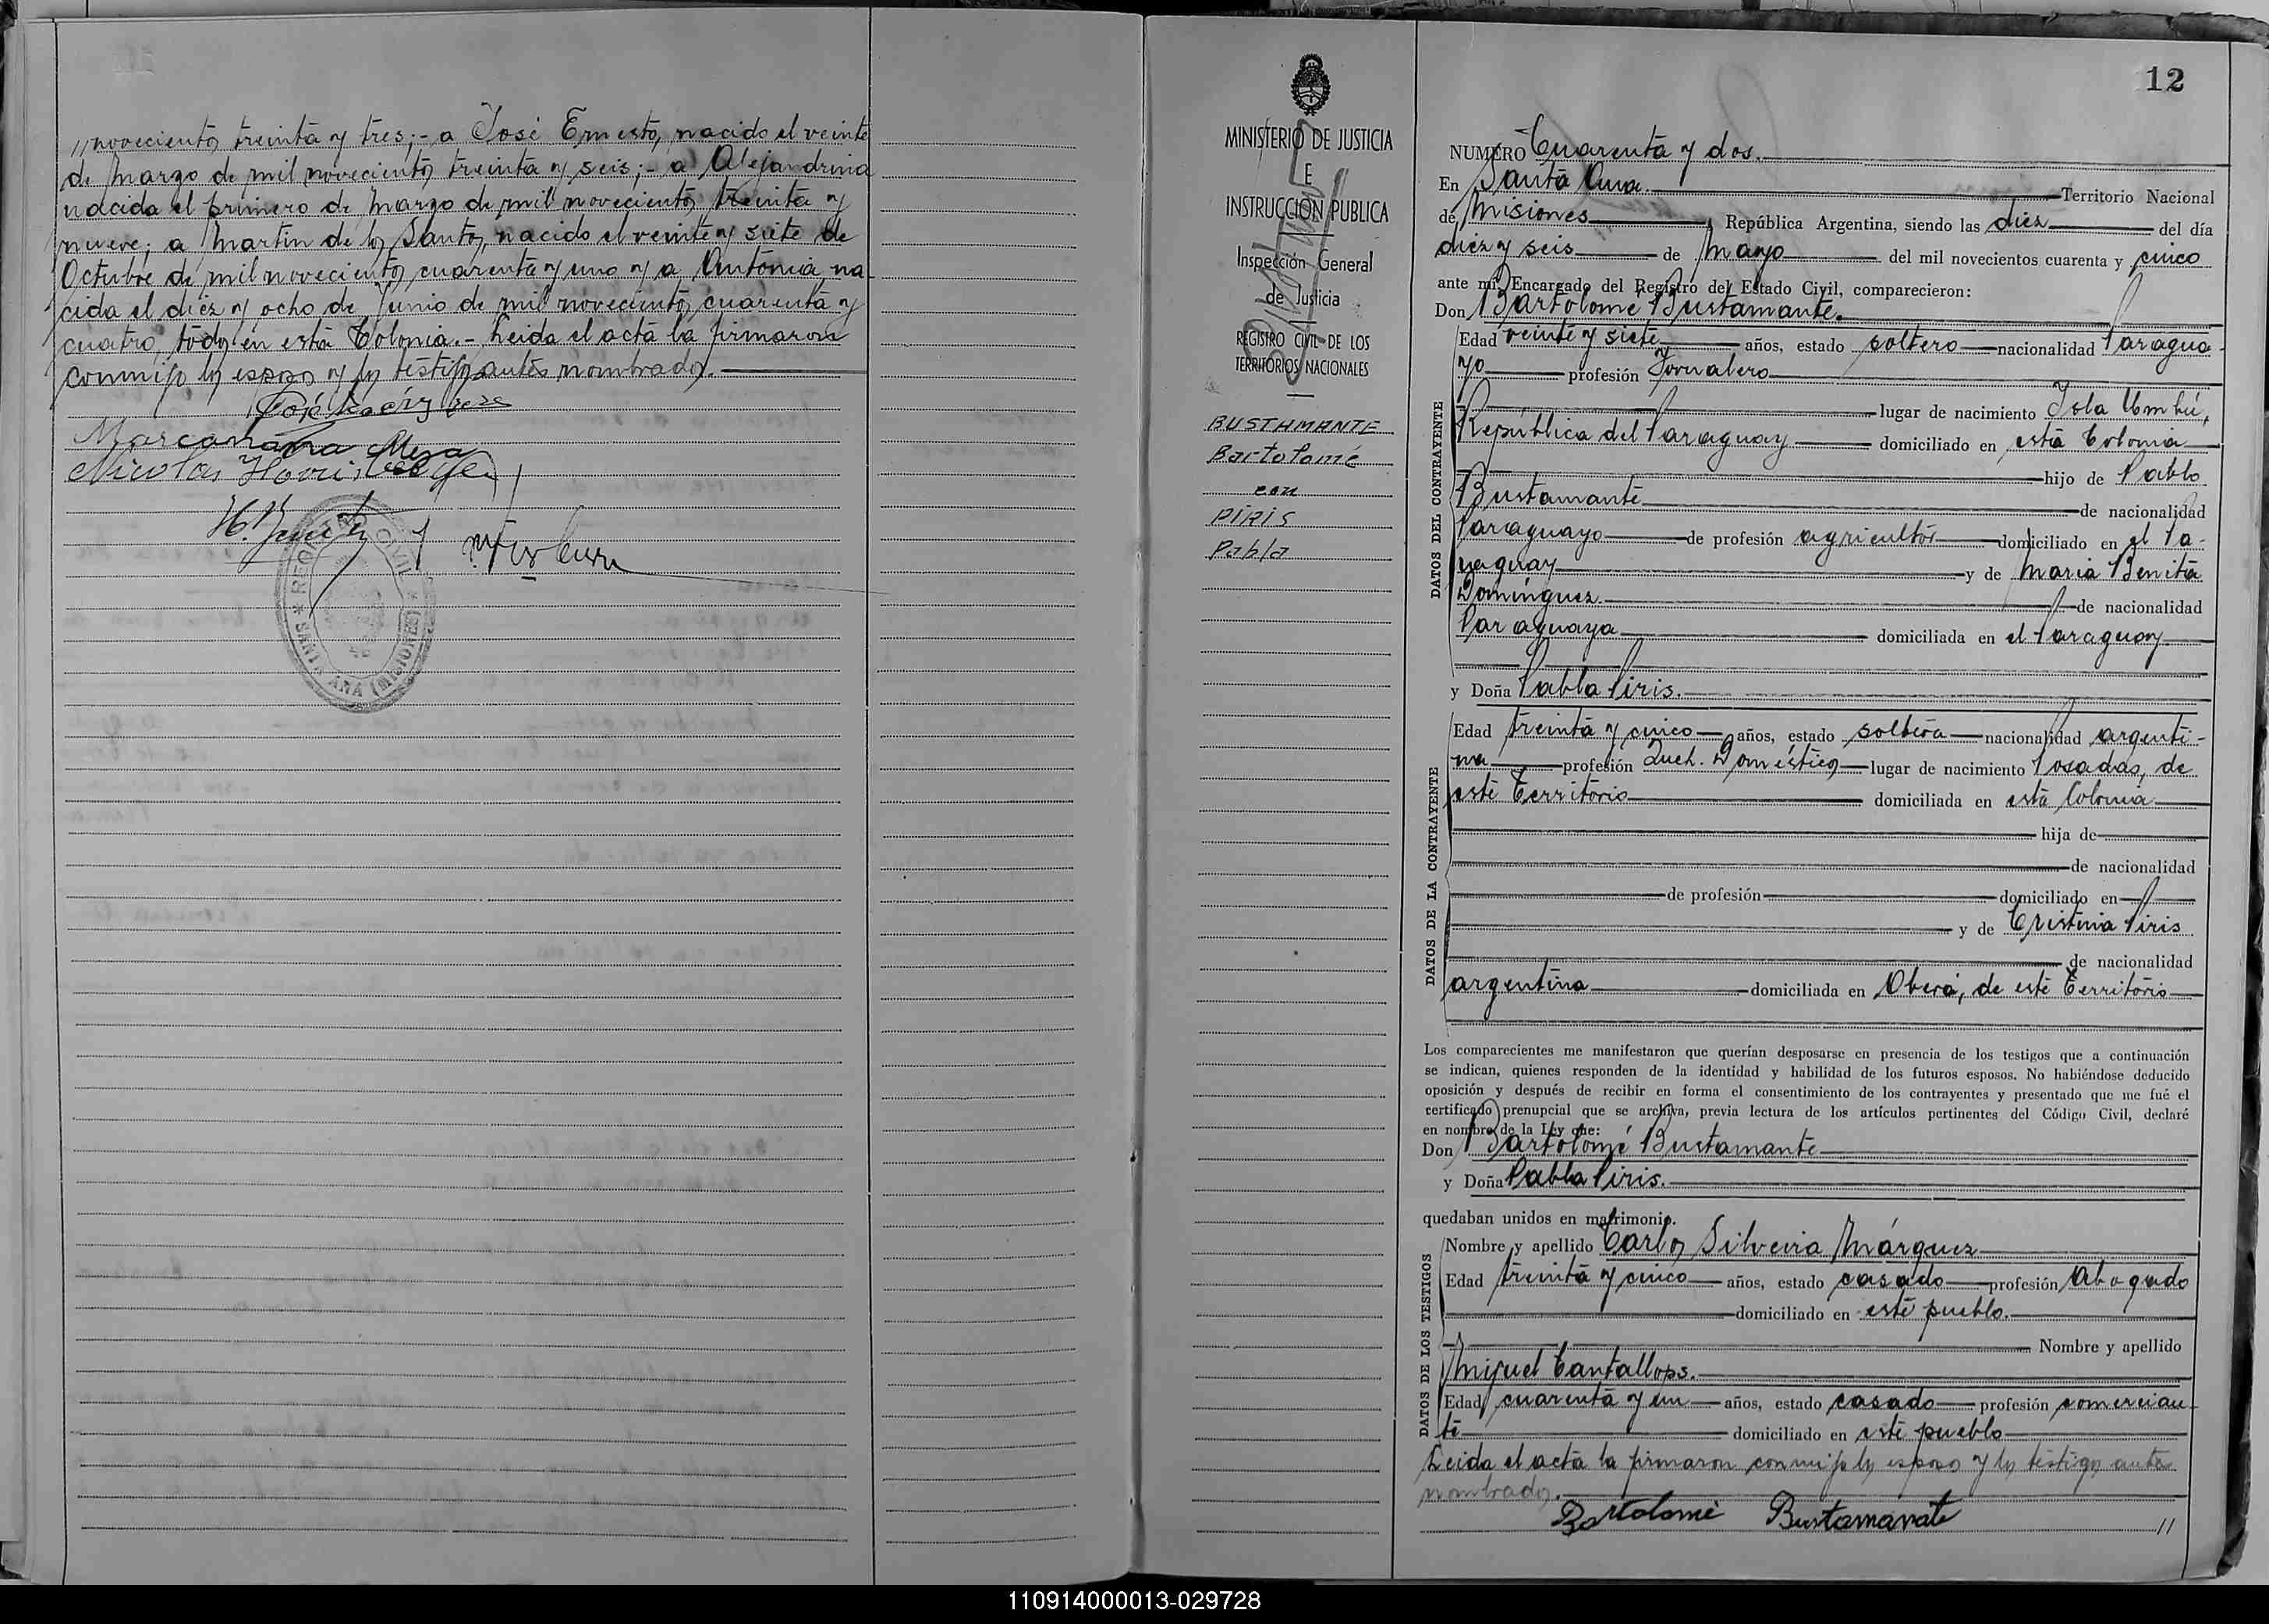 novecientos treinta y tres;- a José Ernesto, nacido el veinte
de Marzo de mil novecientos treinta y seis;- a Alejandrina
nacida el primero de Marzo de mil novecientos treinta y
nueve; a Martin de los Santos, nacido el veinte y siete de
Octubre de mil novecientos cuarenta y uno y a Antonia na-
cida el diez y ocho de Junio de mil novecientos cuarenta y
cuatro, todos en esta Colonia.- Leida el acta la firmaron
conmigo los esposos y los testigos antes nombrados.
Mesa
Nicolas
REGISTRO CIVIL
SANTA ANA (MISIONES)
MINISTERIO DE JUSTICIA
E
INSTRUCCIÓN PUBLICA
Inspección General
de Justicia
REGISTRO CIVIL DE LOS
TERRITORIOS NACIONALES
BUSTAMANTE
Bartolomé
con
PIRIS
Pabla
12
NUMERO Cuarenta y dos.
En Santa Ana. Territorio Nacional
de Misiones, República Argentina, siendo las diez del día
diez y seis de Mayo del mil novecientos cuarenta y cinco
ante mí, Encargado del Registro del Estado Civil, comparecieron:
Don Bartolomé Bustamante.
DATOS DEL CONTRAYENTE
Edad veinte y siete años, estado soltero nacionalidad Paragua-
yo profesión Jornalero
lugar de nacimiento Isla Umbú,
República del Paraguay domiciliado en esta Colonia
hijo de Pablo
Bustamante de nacionalidad
Paraguayo de profesión agricultor domiciliado en el Pa-
raguay y de Maria Benita
Dominguez. de nacionalidad
Paraguaya domiciliada en el Paraguay
y Doña Pabla Piris.
DATOS DE LA CONTRAYENTE
Edad treinta y cinco años, estado soltera nacionalidad argenti-
na profesión Queh. Domésticos lugar de nacimiento Posadas, de
este Territorio domiciliada en esta Colonia
hija de
de nacionalidad
de profesión domiciliado en
y de Cristina Piris
de nacionalidad
argentina domiciliada en Oberá, de este Territorio
Los comparecientes me manifestaron que querían desposarse en presencia de los testigos que a continuación
se indican, quienes responden de la identidad y habilidad de los futuros esposos. No habiéndose deducido
oposición y después de recibir en forma el consentimiento de los contrayentes y presentado que me fué el
certificado prenupcial que se archiva, previa lectura de los artículos pertinentes del Código Civil, declaré
en nombre de la Ley que:
Don Bartolomé Bustamante
y Doña Pabla Piris.
quedaban unidos en matrimonio.
DATOS DE LOS TESTIGOS
Nombre y apellido Carlos Silveira Márquez
Edad treinta y cinco años, estado casado profesión Abogado
domiciliado en este pueblo.
Nombre y apellido
Miguel Cantallops.
Edad cuarenta y un años, estado casado profesión comercian-
te domiciliado en este pueblo
Leida el acta la firmaron conmigo los esposos y los testigos antes
nombrados.
Bartolomé Bustamante
110914000013-029728